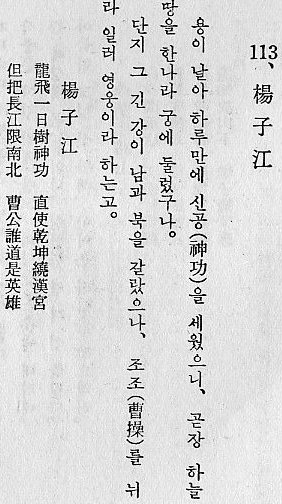 113、楊子江
용이 날아 하루만에 신공(神功)을 세웠으니、곧장 하늘
땅을 한나라 궁에 둘렀구나。
단지 그 긴 강이 남과 북을 갈랐으나、조조(曹操)를 뉘
라 일러 영웅이라 하는고。
楊子江
龍飛一日樹神功 直使乾坤繞漢宮
但把長江限南北 曹公誰道是英雄